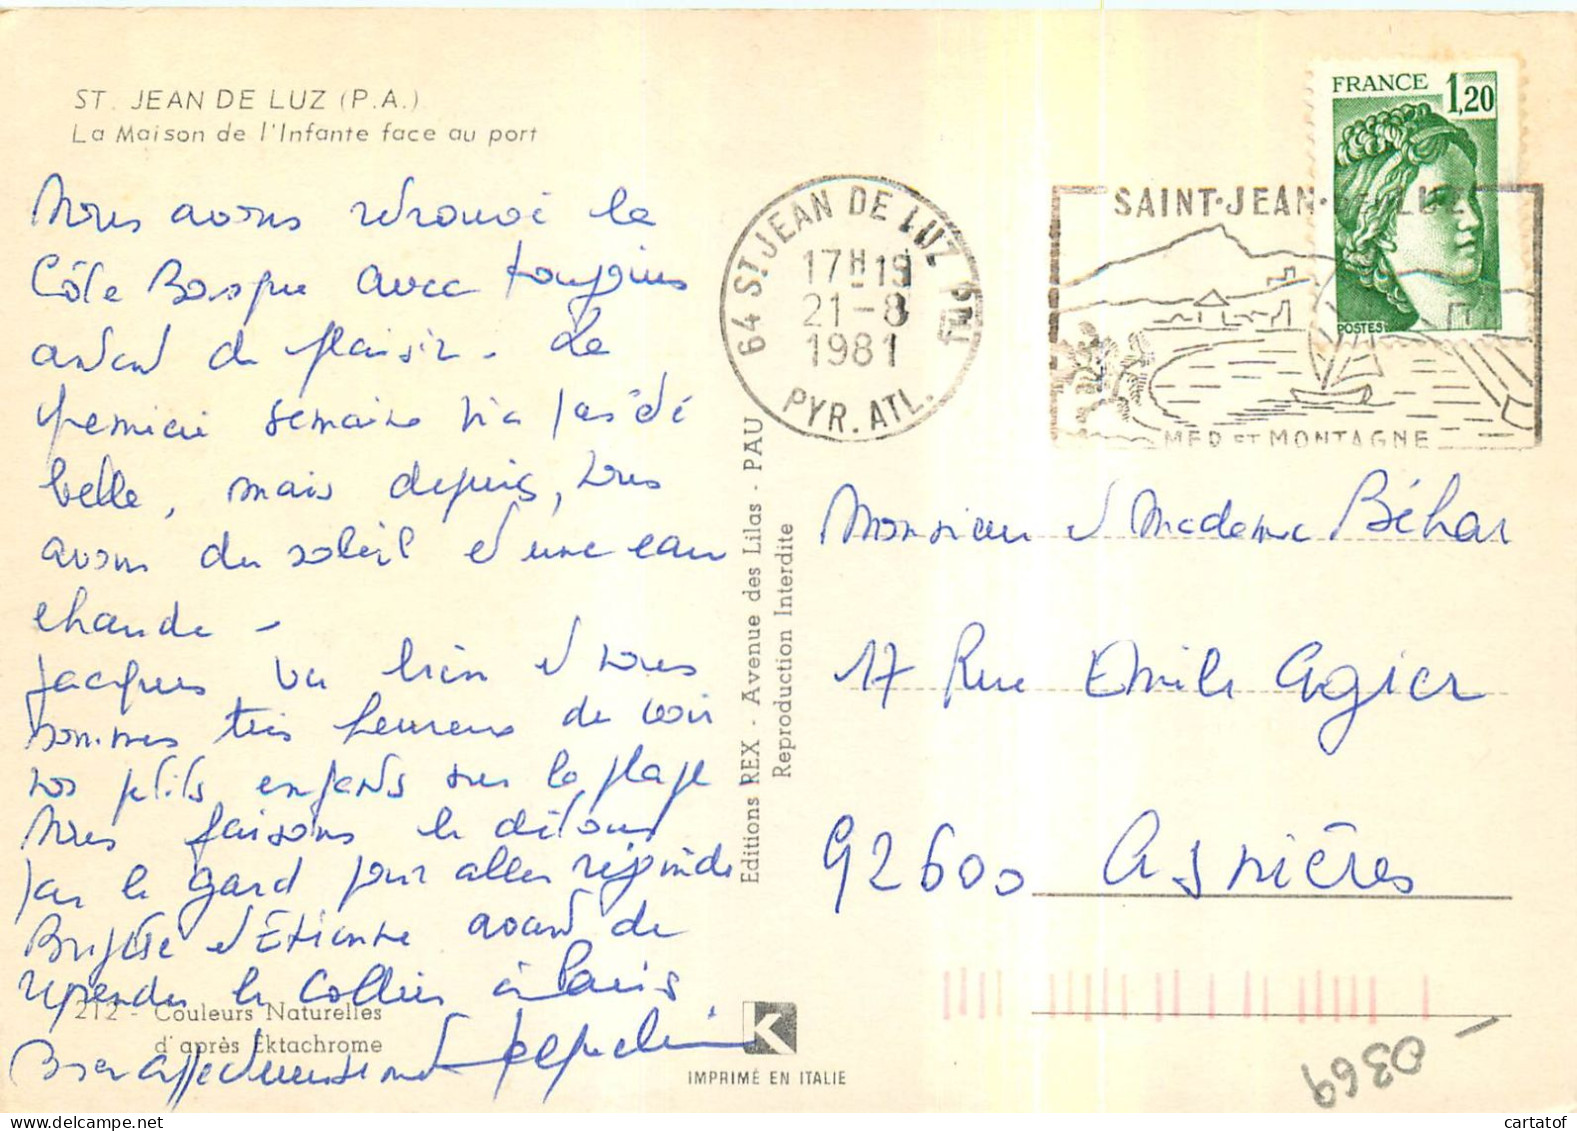 ST. JEAN DE LUZ (P.A.)
La Maison de l'Infante face au port
Nous avons retrouvé la
Côte Basque avec toujours
autant de plaisir. La
première semaine n'a pas été
belle, mais depuis, nous
avons du soleil et une eau
chaude -
Jacques va bien et nous
sommes très heureux de voir
nos petits enfants sur la plage
Nous faisons le détour
par le Gard pour aller rejoindre
Brigitte et Etienne avant de
reprendre le collier à Paris
Bien affectueusement Jacqueline
212 - Couleurs Naturelles
d'après Ektachrome
Editions REX - Avenue des Lilas - PAU
Reproduction Interdite
K
IMPRIMÉ EN ITALIE
64 ST JEAN DE LUZ PPAL
17H-19
21-8
1981
PYR. ATL.
SAINT-JEAN-DE-LUZ
MER ET MONTAGNE
FRANCE 1,20
POSTES
Monsieur et Madame Béhar
17 Rue Emile Agier
92600 Asnières
0369
cartatof